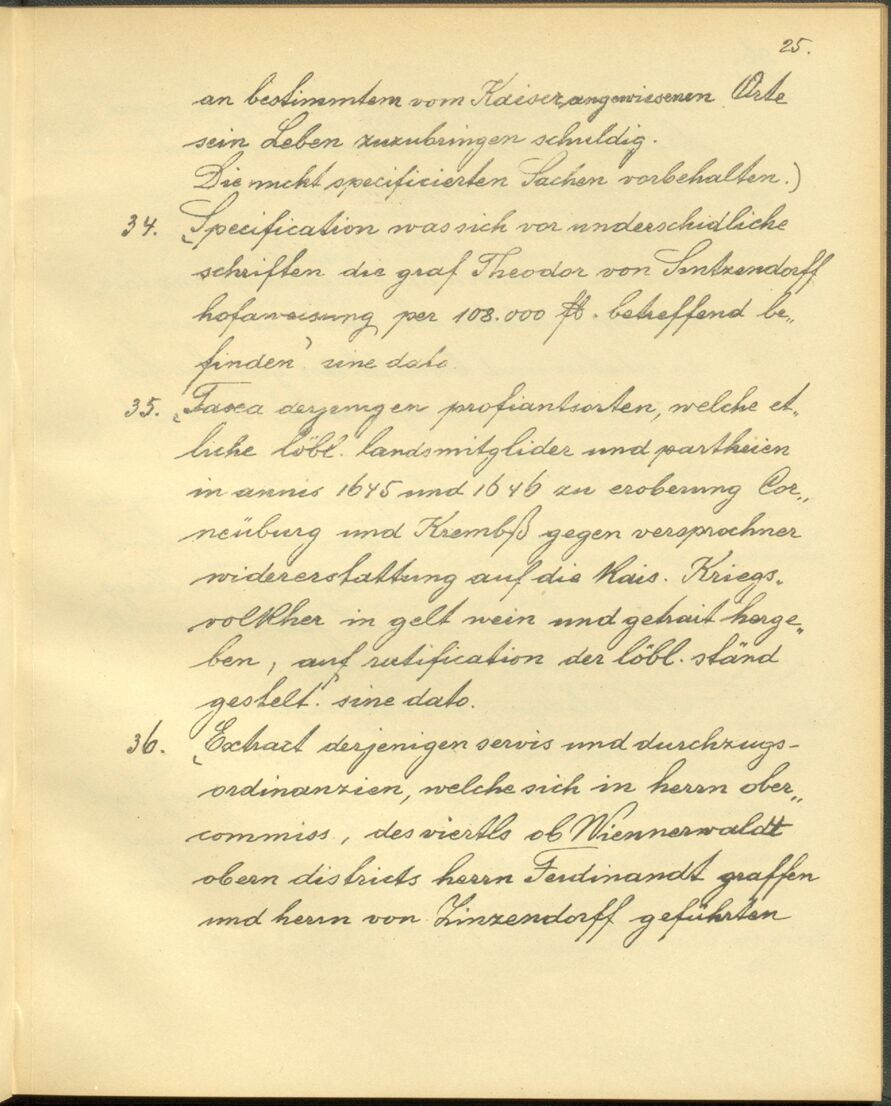 25.
an bestimmtem vom Kaiser angewiesenen Orte
sein Leben zuzubringen schuldig.
Die nicht specificierten Sachen vorbehalten.)
34. „Specification was sich vor underschidliche
schriften die graf Theodor von Sintzendorff
hofanweisung per 108.000 fl. betreffend be„
finden" sine dato.
35. „Taxa derjenigen profiantsorten, welche et„
liche löbl. landsmitglider und partheien
in annis 1645 und 1646 zu eroberung Cor„
neüburg und Krembß gegen versprochner
widererstattung auf die Kais. Kriegs„
volkher in gelt wein und getrait herge„
ben, auf ratification der löbl. ständ
gestelt". sine dato.
36. „Extract derjenigen servis und durchzugs-
ordinanzien, welche sich in herrn ober„
commiss, des viertls ob Wiennerwaldt
obern districts herrn Ferdinandt graffen
und herrn von Zinzendorff geführten